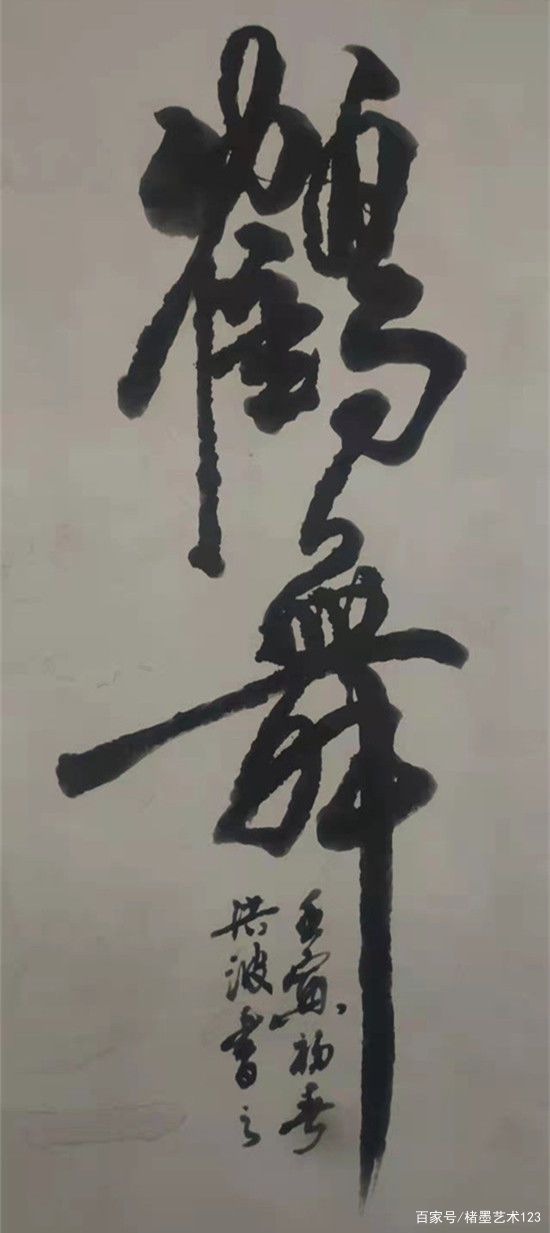 鹤舞
壬寅初春
洪波书之
百家号/楮墨艺术123